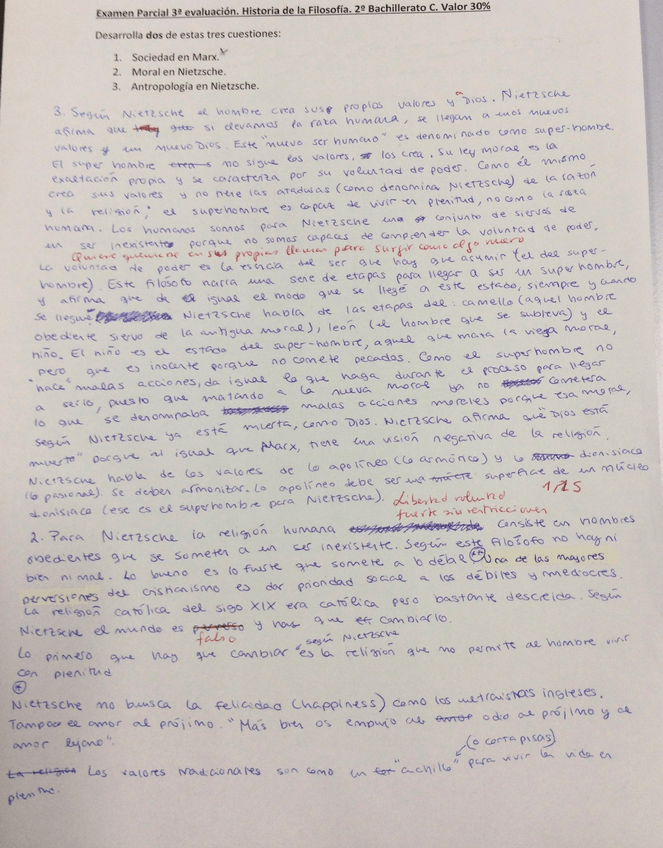 Examen Parcial 3ª evaluación. Historia de la Filosofía. 2º Bachillerato C. Valor 30%
Desarrolla dos de estas tres cuestiones:
1. Sociedad en Marx.
2. Moral en Nietzsche.
3. Antropología en Nietzsche.
3. Según Nietzsche el hombre crea sus propios valores y a Dios. Nietzsche
afirma que si elevamos la raza humana, se llegan a unos nuevos
valores y un nuevo Dios. Este "nuevo ser humano" es denominado como super-hombre.
El super hombre no sigue los valores, los crea. Su ley moral es la
exaltación propia y se caracteriza por su voluntad de poder. Como él mismo
crea sus valores y no tiene las ataduras (como denomina Nietzsche) de la razón
y la religión, el superhombre es capaz de vivir en plenitud, no como la raza
humana. Los humanos somos para Nietzsche un conjunto de siervos de
un ser inexistente porque no somos capaces de comprender la voluntad de poder.
Quiere quemarse en sus propias llamas para surgir como algo nuevo
La voluntad de poder es la esencia del ser que hay que asumir (el del super-
hombre). Este filósofo narra una serie de etapas para llegar a ser un superhombre,
y afirma que da igual el modo que se llegé a este estado, siempre y cuando
se llegue. Nietzsche habla de las etapas del: camello (aquel hombre
obediente siervo de la antigua moral), león (el hombre que se subleva) y el
niño. El niño es el estado del super-hombre, aquel que mata la vieja moral,
pero que es inocente porque no comete pecados. Como el superhombre no
"hace" malas acciones, da igual lo que haga durante el proceso para llegar
a serlo, puesto que matando a la nueva moral ya no cometera
lo que se denominaba malas acciones morales porque esa moral,
según Nietzsche ya está muerta, como Dios. Nietzsche afirma que "Dios está
muerto" porque al igual que Marx, tiene una visión negativa de la religión.
Nietzsche habla de los valores de lo apolíneo (lo armónico) y lo dionisiaco
(lo pasional). Se deben armonizar. Lo apolíneo debe ser una superficie de un núcleo
dionisíaco (ese es el superhombre para Nietzsche).
Libertad voluntad
fuerte sin restricciones
1/25
2. Para Nietzsche la religión humana consiste en hombres
obedientes que se someten a un ser inexistente. Según este filósofo no hay ni
bien ni mal. Lo bueno es lo fuerte que somete a lo débil. Una de las mayores
perversiones del cristianismo es dar prioridad social a los débiles y mediocres.
La religión católica del siglo XIX era católica pero bastante descreída. Según
Nietzsche el mundo es perverso y hay que cambiarlo.
falso
Lo primero que hay que cambiar según Nietzsche es la religión que no permite al hombre vivir
con plenitud
Nietzsche no busca la felicidad (happiness) como los ingleses.
Tampoco el amor al prójimo. "Más bien os empujo al odio al prójimo y al
amor lejano".
(o cortapisas)
La religión Los valores tradicionales son como un "cuchillo" para vivir la vida en
plenitud.